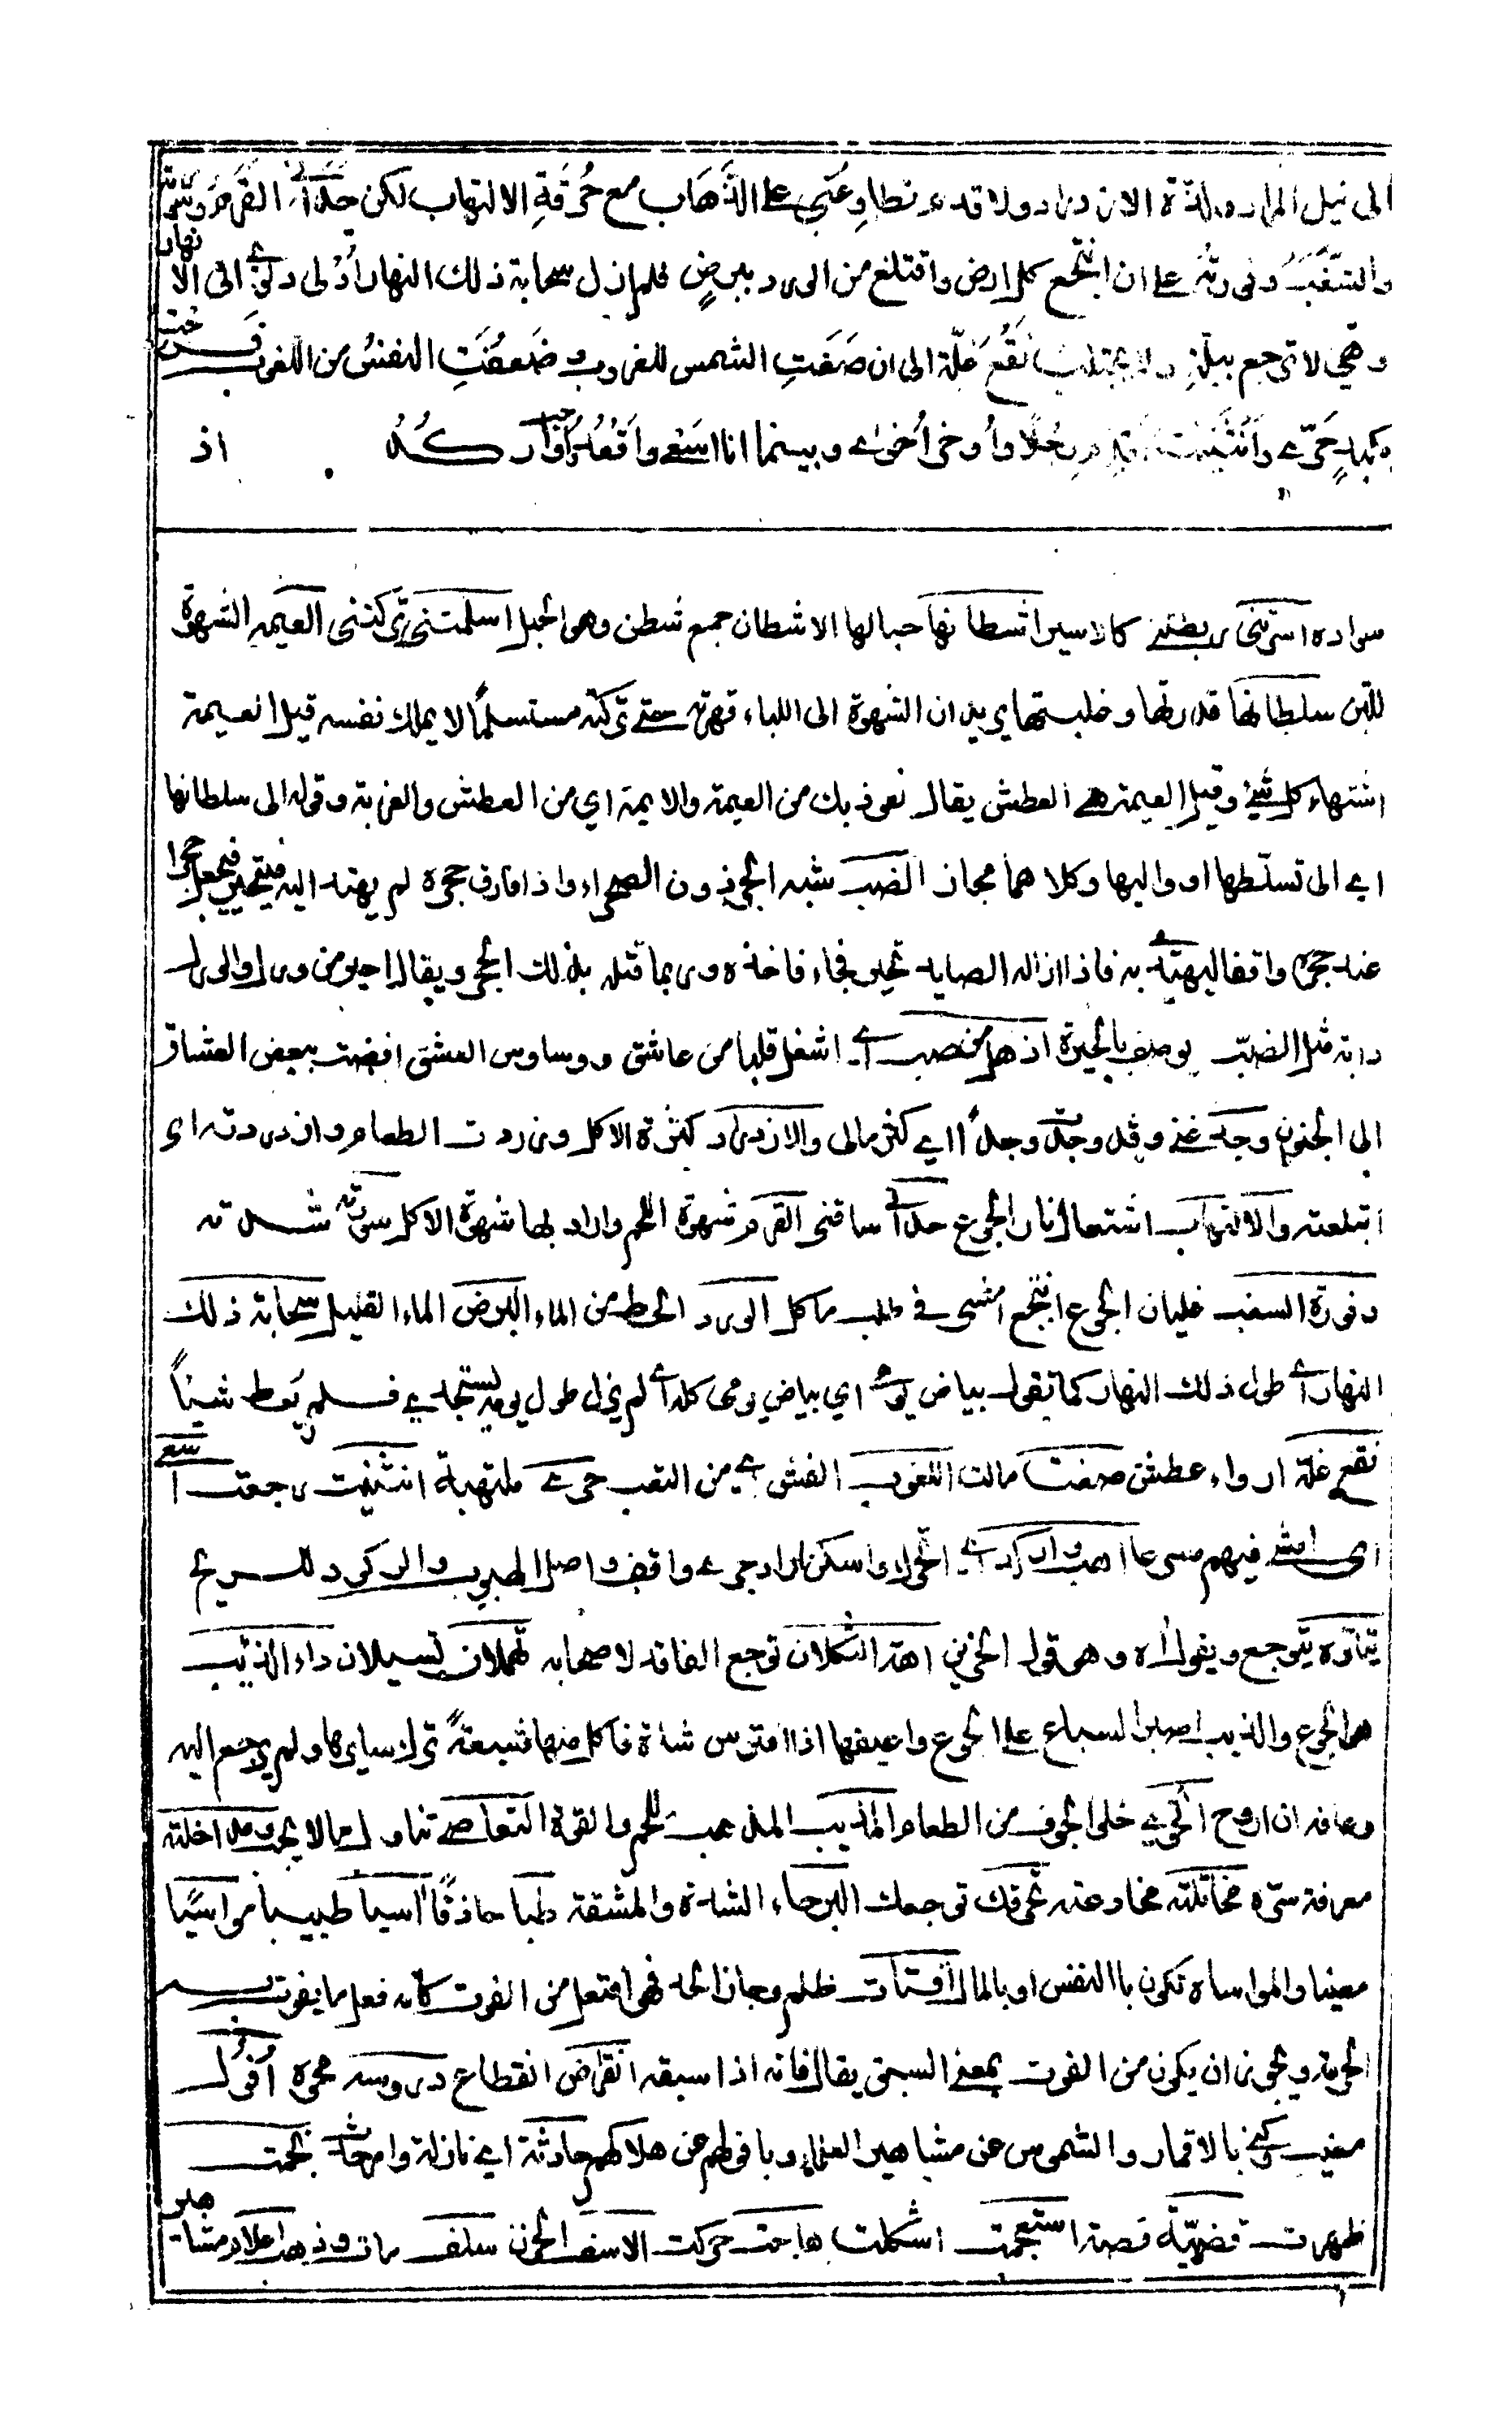 الى نيل المراد ولذة الازدراد ولا قدم تطاوعني على الذهاب مع حُرقَةِ الالتهاب لكن حداني القَرَم وسَورته
والسَّغَبُ وفورتُه على ان انتجع كل ارض واقتنع من الورد ببرضٍ فلم ازل سحابة ذلك النهار اُدلى دلوي الى الانهار
وهي لا ترجع ببلّةٍ ولا تجتلب نَقْعَ غلّة الى ان صَغَتِ الشمس للغروب وضَعُفَتِ النفسُ من اللغوب فرحت
بكبدٍ حَرّى وانثنيت اقدم رِجلًا واُوخر اُخرى وبينما انا اسعى واَقْعُد واَهُبّ واركُدُ اذ
سواده استرتني ربطتني كالاسير اشطانها حبالها الاشطان جمع شطن وهو الحبل اسلمتني تركتني العيمه الشهوة
للّبن سلطانها قدرتها وغلبتها يريد ان الشهوة الى اللباء قهرته حتى تركته مستسلماً لا يملك نفسه قيل العيمة
اشتهاء كل شئ وقيل العيمة هي العطش يقال نعوذ بك من العيمة والايمة اي من العطش والغربة وقوله الى سلطانها
اي الى تسلّطها او واليها وكلاهما مجاز الضب شبه الجرذون الصحراء واذا فارق جحره لم يهتد اليه فيتحير فيجعل حجرا
عند جحره واقفا ليهتدي به فاذا ازاله الصايد تحير فجاء فاخذه وربما قتله بذلك الحجر ويقال احير من ورل والورل
دابة مثل الضبّ يوصف بالحيرة اذهل من صب اي اشغل قلبا من عاشق ووساوس العشق افضت ببعض العشاق
الى الجنون وجد غنى وقد وجدت وجداً اي كثر مالى والازدراد كثرة الاكل وزردت الطعام وازدردته اى
ابتلعته والالتهاب اشتعال نار الجوع حداني ساقني القرم شهوة اللحم واراد بها شهوة الاكل سورته شدته
وفورة السغب غليان الجوع انتجع امشى في طلب ماكل الورد الحظ من الماء البرض الماء القليل سحابة ذلك
النهار اي طول ذلك النهار كما تقول بياض يومي اي بياض يومى كله اي لم يزل طول يومه يستجدي فلم يُعط شيئاً
نقع غلة ارواء عطش صغت مالت اللغوب الفتورى من التعب حرى ملتهبة انثنيت رجعت اسعى
اى امشى فيهم مسرعا اهب واركد اي اتحرك واسكن
يتأوه يتوجع ويقول اه وهو قول الحزين اهة الثكلان توجع الفاقد لاصحابه تهملان تسيلان داء الذئب
هو الجوع والذيب اصبر السباع على الجوع واعيفها اذا افترس شاة فاكل منها شبعةً ترك سايرها ولم يرجع اليه
وعافه ان اروح الخوى خلو الجوف من الطعام المذيب المذهب للحم والقوة التعاطي تناول ما لا يجوز اخلته
معرفة سرّه مخاتلته مخادعته تحرقك توجعك البرحاء الشدة والمشقة طبا حاذقًا آسيا طبيبا مواسيًا
معينا والمواساة تكون بالنفس او بالمال افتات ظلم وجاز الحد فهو افتعل من الفوت كانه فعل ما يفوت به
الحرية ويجوز ان يكون من الفوت بمعنى السبق يقال فاته اذا سبقه انقراض انقطاع دروسه محوه اُفول
مغيب كنى بالاقمار والشموس عن مشاهير العلماء وبافولهم عن هلاكهم حادثة اي نازلة وامر حادث نجمت
ظهرت قضيّة قصة استعجمت اشكلت هاجت حركت الاسف الحزن سلف مات وذهب